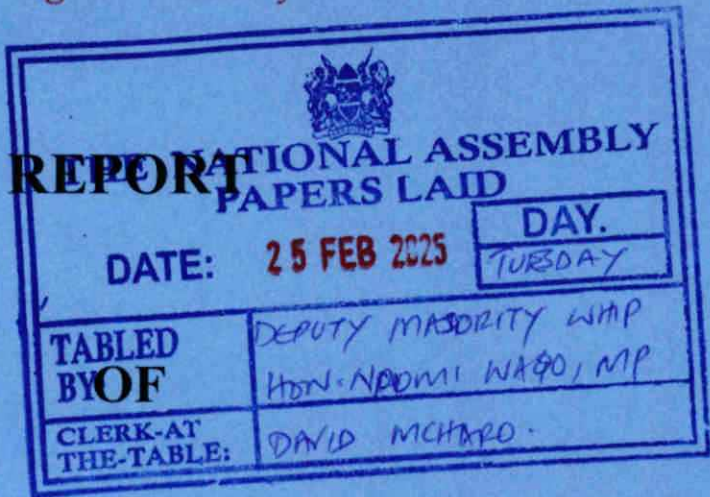 REPORT
THE NATIONAL ASSEMBLY
PAPERS LAID
DATE: 25 FEB 2025
DAY.
TUESDAY
TABLED
BY
DEPUTY MAJORITY WHIP
HON. NAOMI WAQO, MP
OF
CLERK-AT
THE-TABLE:
DAVID MCHARO.